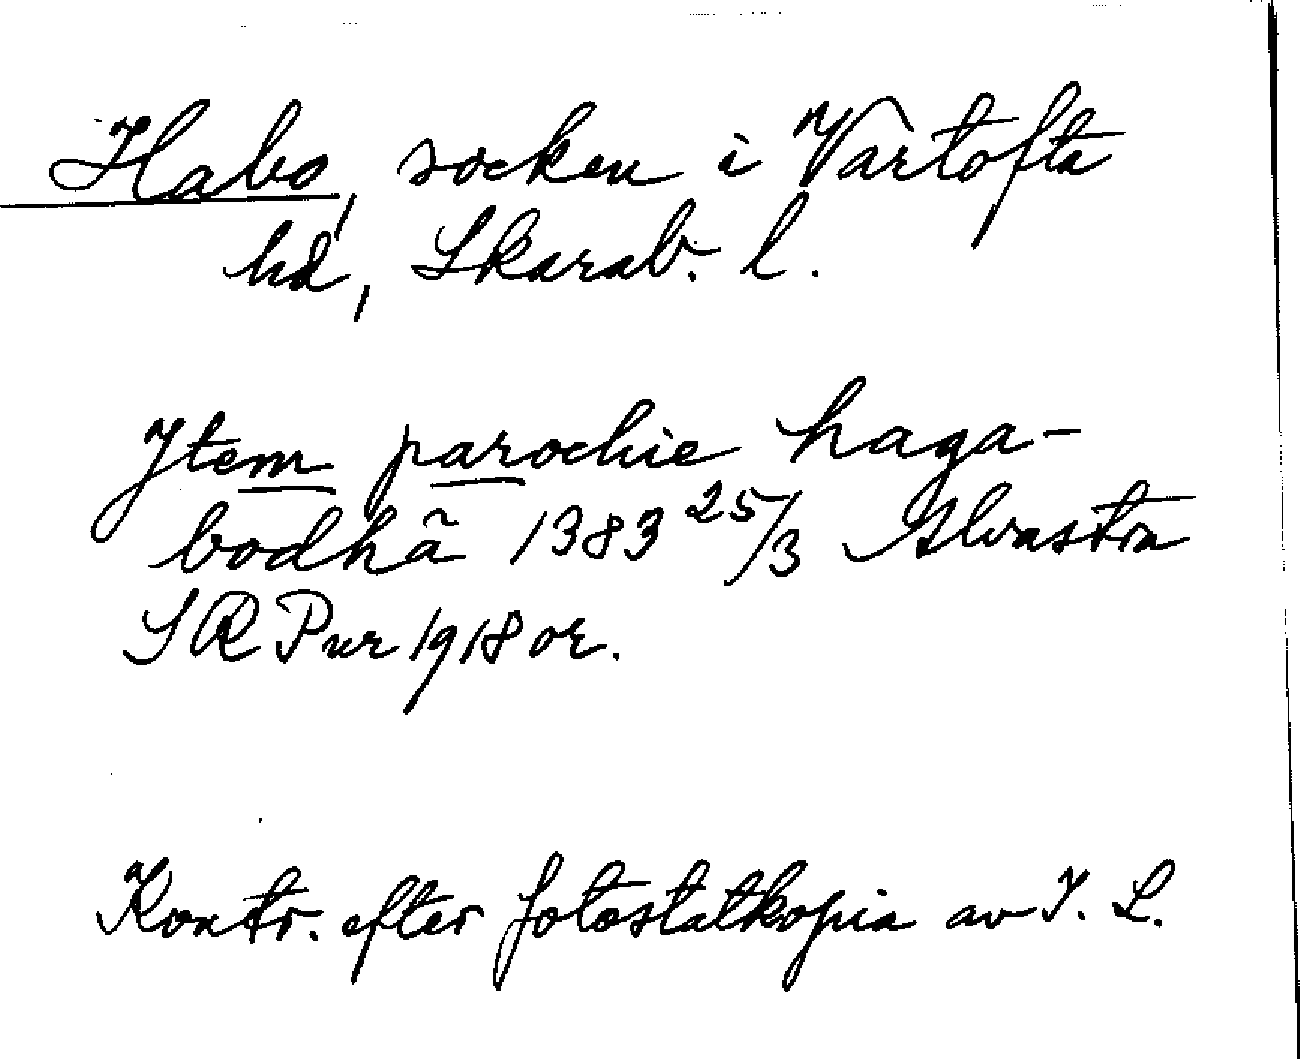 Habo, socken i Vartofta
hd, Skarab. l.
Jtem parochie haga-
bodhã 1383 25/3 Alvastra
SRPur 1918 or.
Kontr. efter fotostatkopia av I. L.